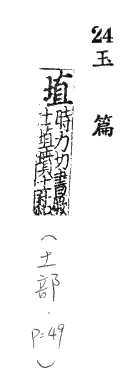 24
玉篇
埴
時力切書曰厥
土埴墳土黏
(土部.
P=49)